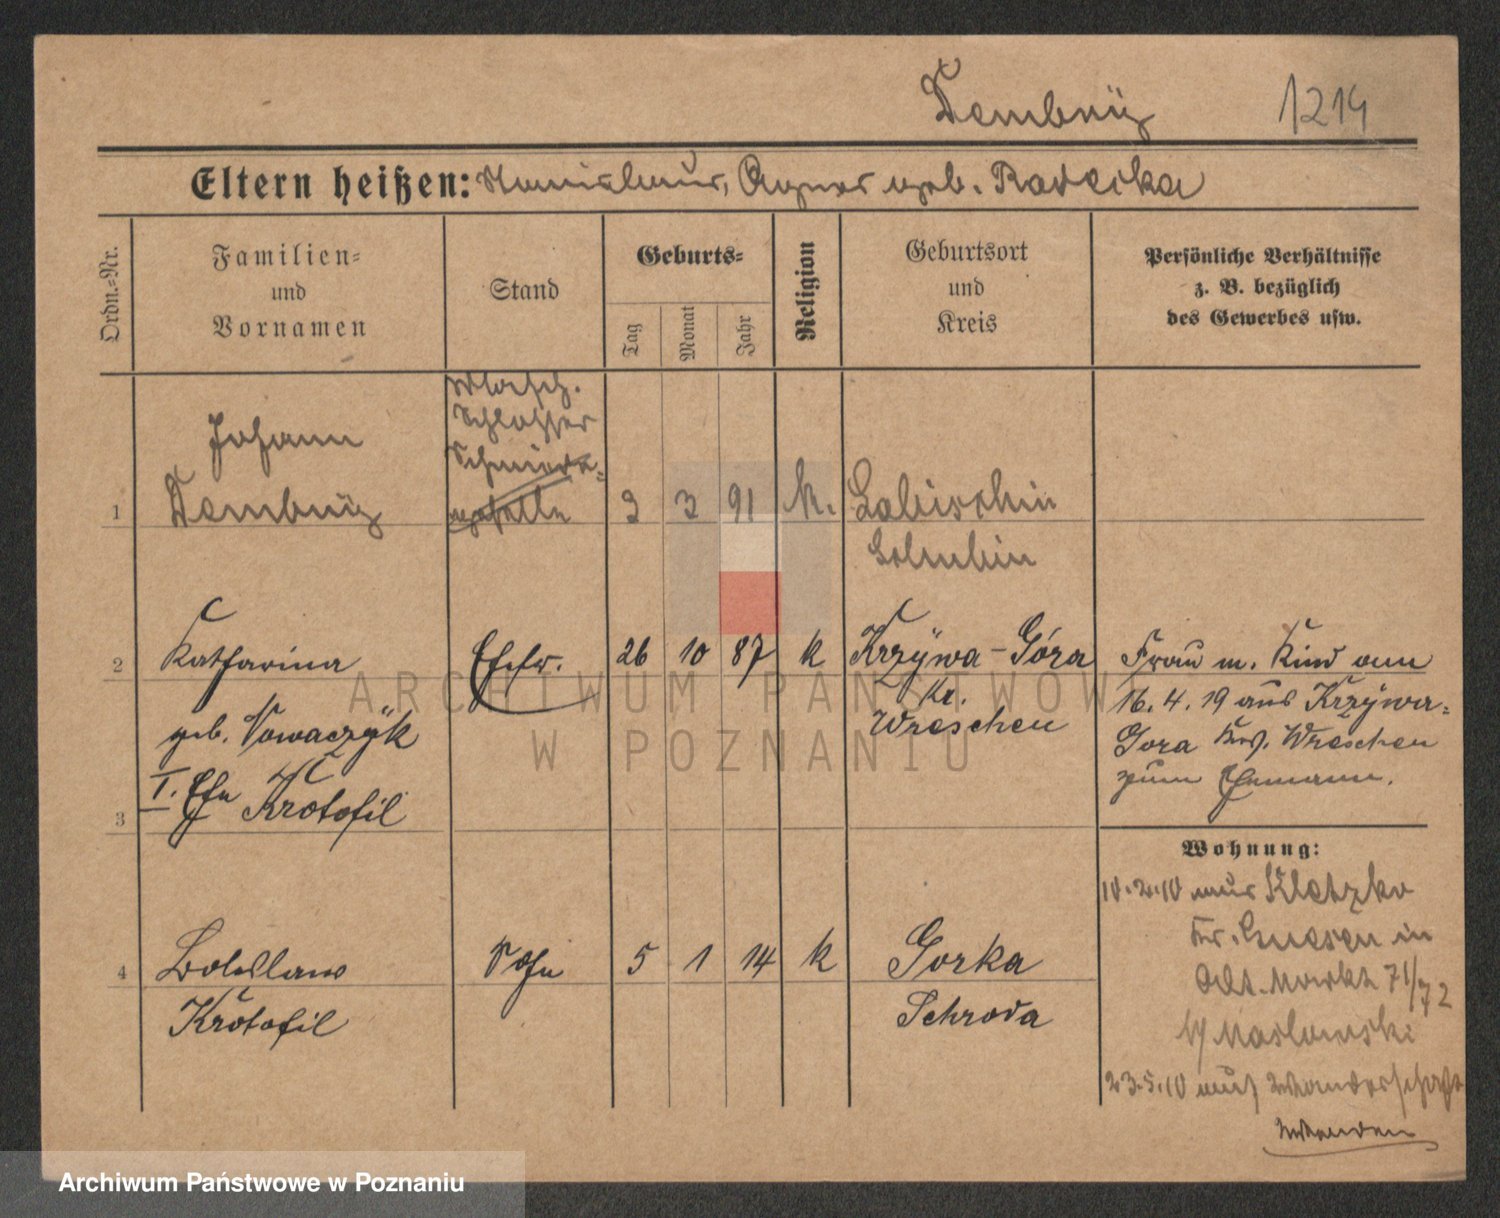 Dembny 1214
Eltern heißen: Stanislaus, Agnes geb. Radecka
Ordn.=Nr.
Familien=
und
Vornamen
Stand
Geburts=
Tag
Monat
Jahr
Religion
Geburtsort
und
Kreis
Persönliche Verhältnisse
z. B. bezüglich
des Gewerbes usw.
Masch.
Schlosser
Johann
Schmiede=
1 Dembny geselle 3 3 91 k. Labischin
Schubin
2 Katharina Ehefr. 26 10 87 k Krzÿwa-Góra
geb. Nowaczÿk
Kr.
Wreschen
Frau m. Kind am
16.4.19 aus Krzÿwa=
Gora Krs. Wreschen
zum Ehemann.
3 I. Ehe Krotofil
4 Boleslaus Sohn 5 1 14 k Gorka
Krotofil Schroda
Wohnung:
10.2.10 aus Kletzko
Kr. Gnesen in
Alt. Markt 71/72
b/ Maslowski
23.5.10 auf Wanderschaft
ARCHIWUM PAŃSTWOWE
W POZNANIU
Archiwum Państwowe w Poznaniu